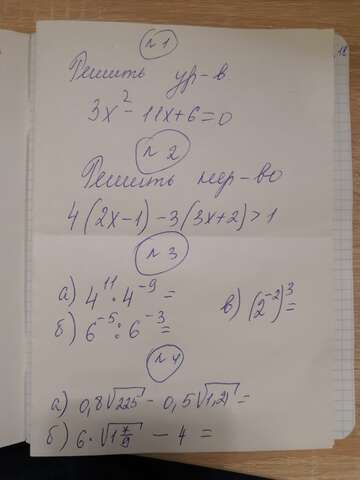 №1
Решить ур-в
3x² - 11x + 6 = 0
№2
Решить нер-во
4(2x-1) - 3(3x+2) > 1
№3
а) 4¹¹ · 4⁻⁹ =
в) (2⁻²)³ =
б) 6⁻⁵ : 6⁻³ =
№4
а) 0,8√225 - 0,5√1,21 =
б) 6·√1 7/9 - 4 =